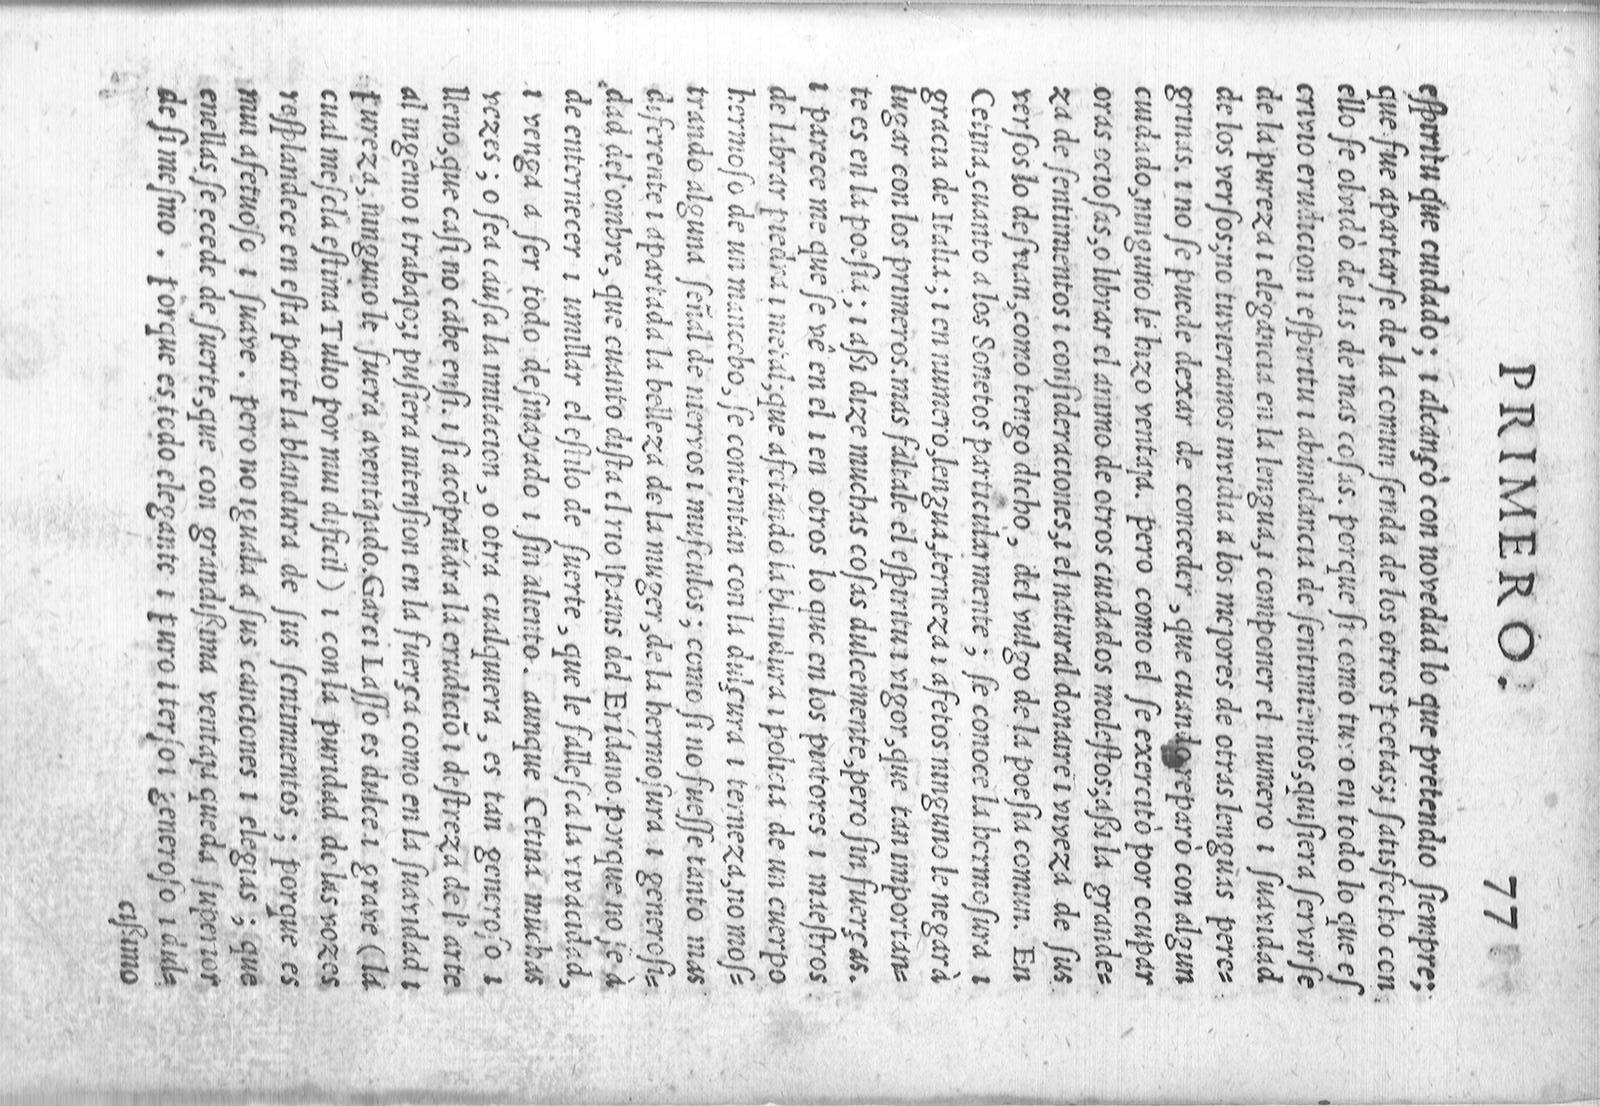 PRIMERO. 77
eſpiritu que cuidado; i alcançò con novedad lo que pretendio ſiempre;
que fue apartarſe de la comun ſenda de los otros poetas; i ſatisfecho con
ello ſe olvidò de las de mas coſas. porque ſi como tuvo en todo lo que eſ
crivio erudicion i eſpiritu i abundancia de ſentimientos, quiſiera ſervirſe
de la pureza i elegancia en la lengua, i componer el numero i ſuavidad
de los verſos; no tuvieramos invidia a los mejores de otras lenguas pere=
grinas. i no ſe puede dexar de conceder, que cuando reparò con algun
cuidado, ninguno le hizo ventaja. pero como el ſe exercitò por ocupar
oras ocioſas, o librar el animo de otros cuidados moleſtos; aßi la grande=
za de ſentimientos i conſideraciones, i el natural donaire i viveza de ſus
verſos lo deſvian, como tengo dicho, del vulgo de la poeſia comun. En
Cetina, cuanto a los Sonetos particularmente; ſe conoce la hermoſura i
gracia de Italia; i en numero, lengua, terneza i afetos ninguno le negarà
lugar con los primeros. mas faltale el eſpiritu i vigor, que tan importan=
te es en la poeſia; i aßi dize muchas coſas dulcemente, pero ſin fuerças.
i parece me que ſe vê en el i en otros lo que en los pintores i maeſtros
de labrar piedra i metal; que afetando la blandura i policia de un cuerpo
hermoſo de un mancebo, ſe contentan con la dulçura i terneza, no moſ=
trando alguna ſeñal de niervos i muſculos; como ſi no fueſſe tanto mas
diferente i apartada la belleza de la muger, de la hermoſura i generoſi=
dad del ombre, que cuanto diſta el rio Ipanis del Erídano. porque no ſe à
de enternecer i umillar el eſtilo de ſuerte, que le falleſca la vivacidad,
i venga a ſer todo deſmayado i ſin aliento. aunque Cetina muchas
vezes; o ſea cauſa la imitacion, o otra cualquiera, es tan generoſo i
lleno, que caſi no cabe enſi. i ſi acõpañára la erudiciõ i deſtreza del' arte
al ingenio i trabajo; i puſiera intenſion en la fuerça como en la ſuavidad i
pureza, ninguno le fuera aventajado. Garci Laſſo es dulce i grave (la
cual meſcla eſtima Tulio por mui dificil) i con la puridad de las vozes
reſplandece en eſta parte la blandura de ſus ſentimientos; porque es
mui afetuoſo i ſuave. pero no iguala a ſus canciones i elegias; que
enellas ſe ecede de ſuerte, que con grandißima ventaja queda ſuperior
de ſi meſmo. porque es todo elegante i puro i terſo i generoſo i dul=
cißimo